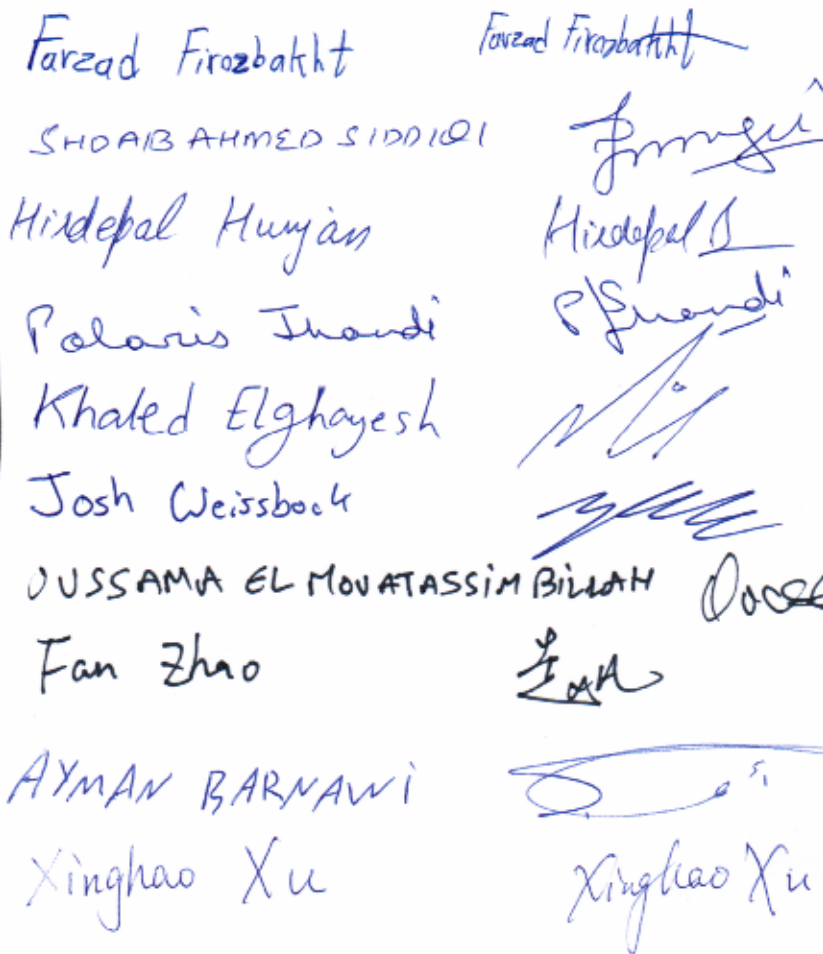 Farzad Firozbakht Farzad Firozbakht
SHOAIB AHMED SIDDIQI
Hirdepal Hunjan Hirdepal
Polaris Jhandi PJhandi
Khaled Elghayesh
Josh Weissbock
OUSSAMA EL MOUATASSIM BILLAH
Fan Zhao
AYMAN BARNAWI
Xinghao Xu Xinghao Xu